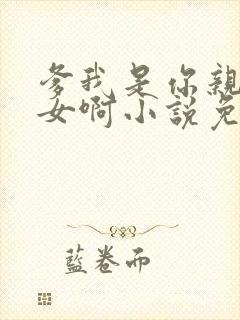 爹我是你親
女啊小說免
藍卷而